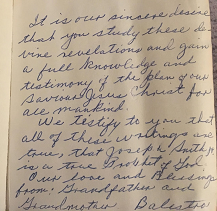 It is our sincere desire
that you study these de-
vine revelations and gain
a full knowledge and
testimony of the plan of our
Saviour Jesus Christ for
all mankind.
We testify to you that
all of these writings are
true, that Joseph Smith Jr.
is a true Prophet of God.
Our love and Blessings
from: Grandfather and
Grandmother Balestro